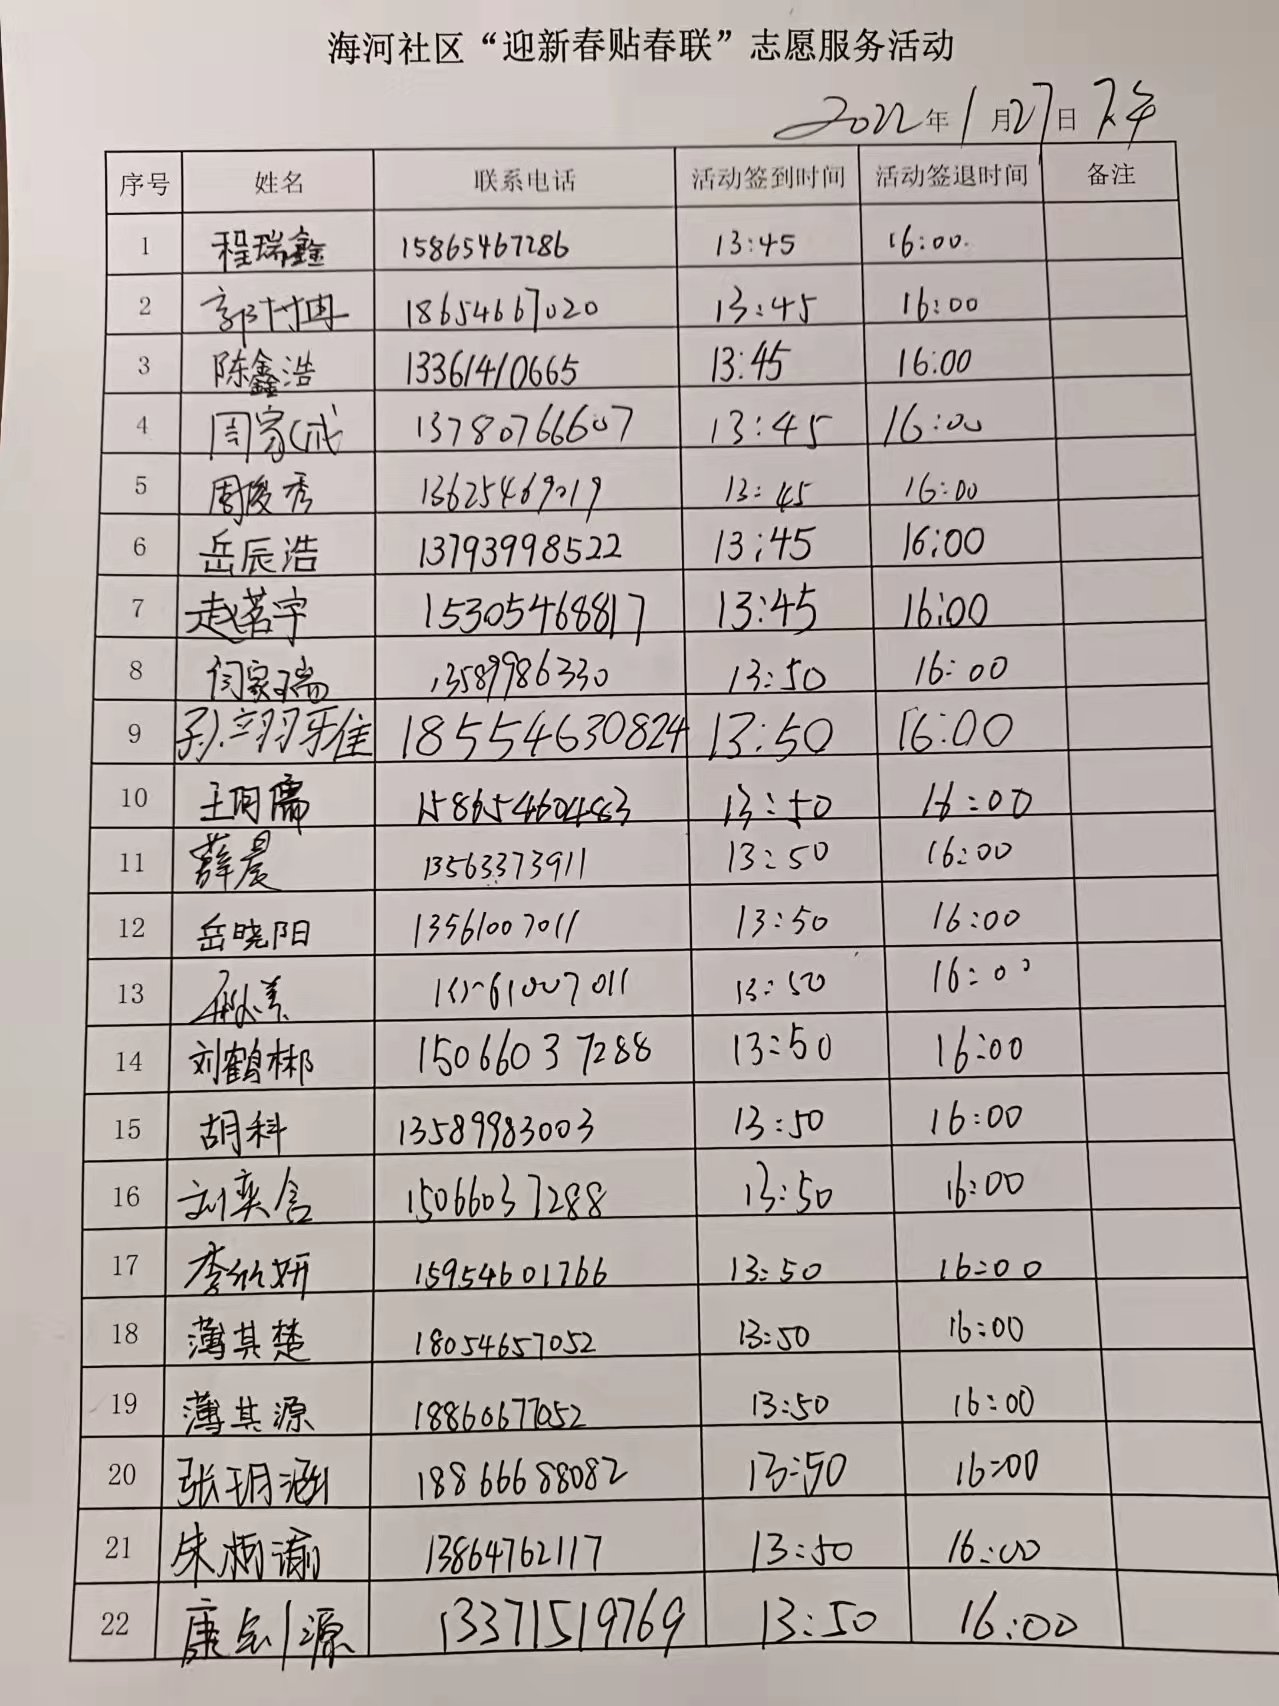 海河社区“迎新春贴春联”志愿服务活动
2022年1月27日 下午
序号 姓名 联系电话 活动签到时间 活动签退时间 备注
1 程瑞鑫 15865467286 13:45 16:00
2 18654667020 13:45 16:00
3 陈鑫浩 13361410665 13:45 16:00
4 周家成 13780766607 13:45 16:00
5 周俊秀 13625469019 13:45 16:00
6 岳辰浩 13793998522 13:45 16:00
7 赵茗宇 15305468817 13:45 16:00
8 闫家瑞 13589986330 13:50 16:00
9 孙翊雅 18554630824 13:50 16:00
10 王同儒 15865460483 13:50 16:00
11 薛晨 13563373911 13:50 16:00
12 岳晓阳 13561007011 13:50 16:00
13 13561007011 13:50 16:00
14 刘鹤彬 15066037288 13:50 16:00
15 胡科 13589983003 13:50 16:00
16 刘奕含 15066037288 13:50 16:00
17 李欣妍 15954601766 13:50 16:00
18 薄其楚 18054657052 13:50 16:00
19 薄其源 18860677052 13:50 16:00
20 张玥涵 18866688082 13:50 16:00
21 朱柄谕 13864762117 13:50 16:00
22 13371519769 13:50 16:00